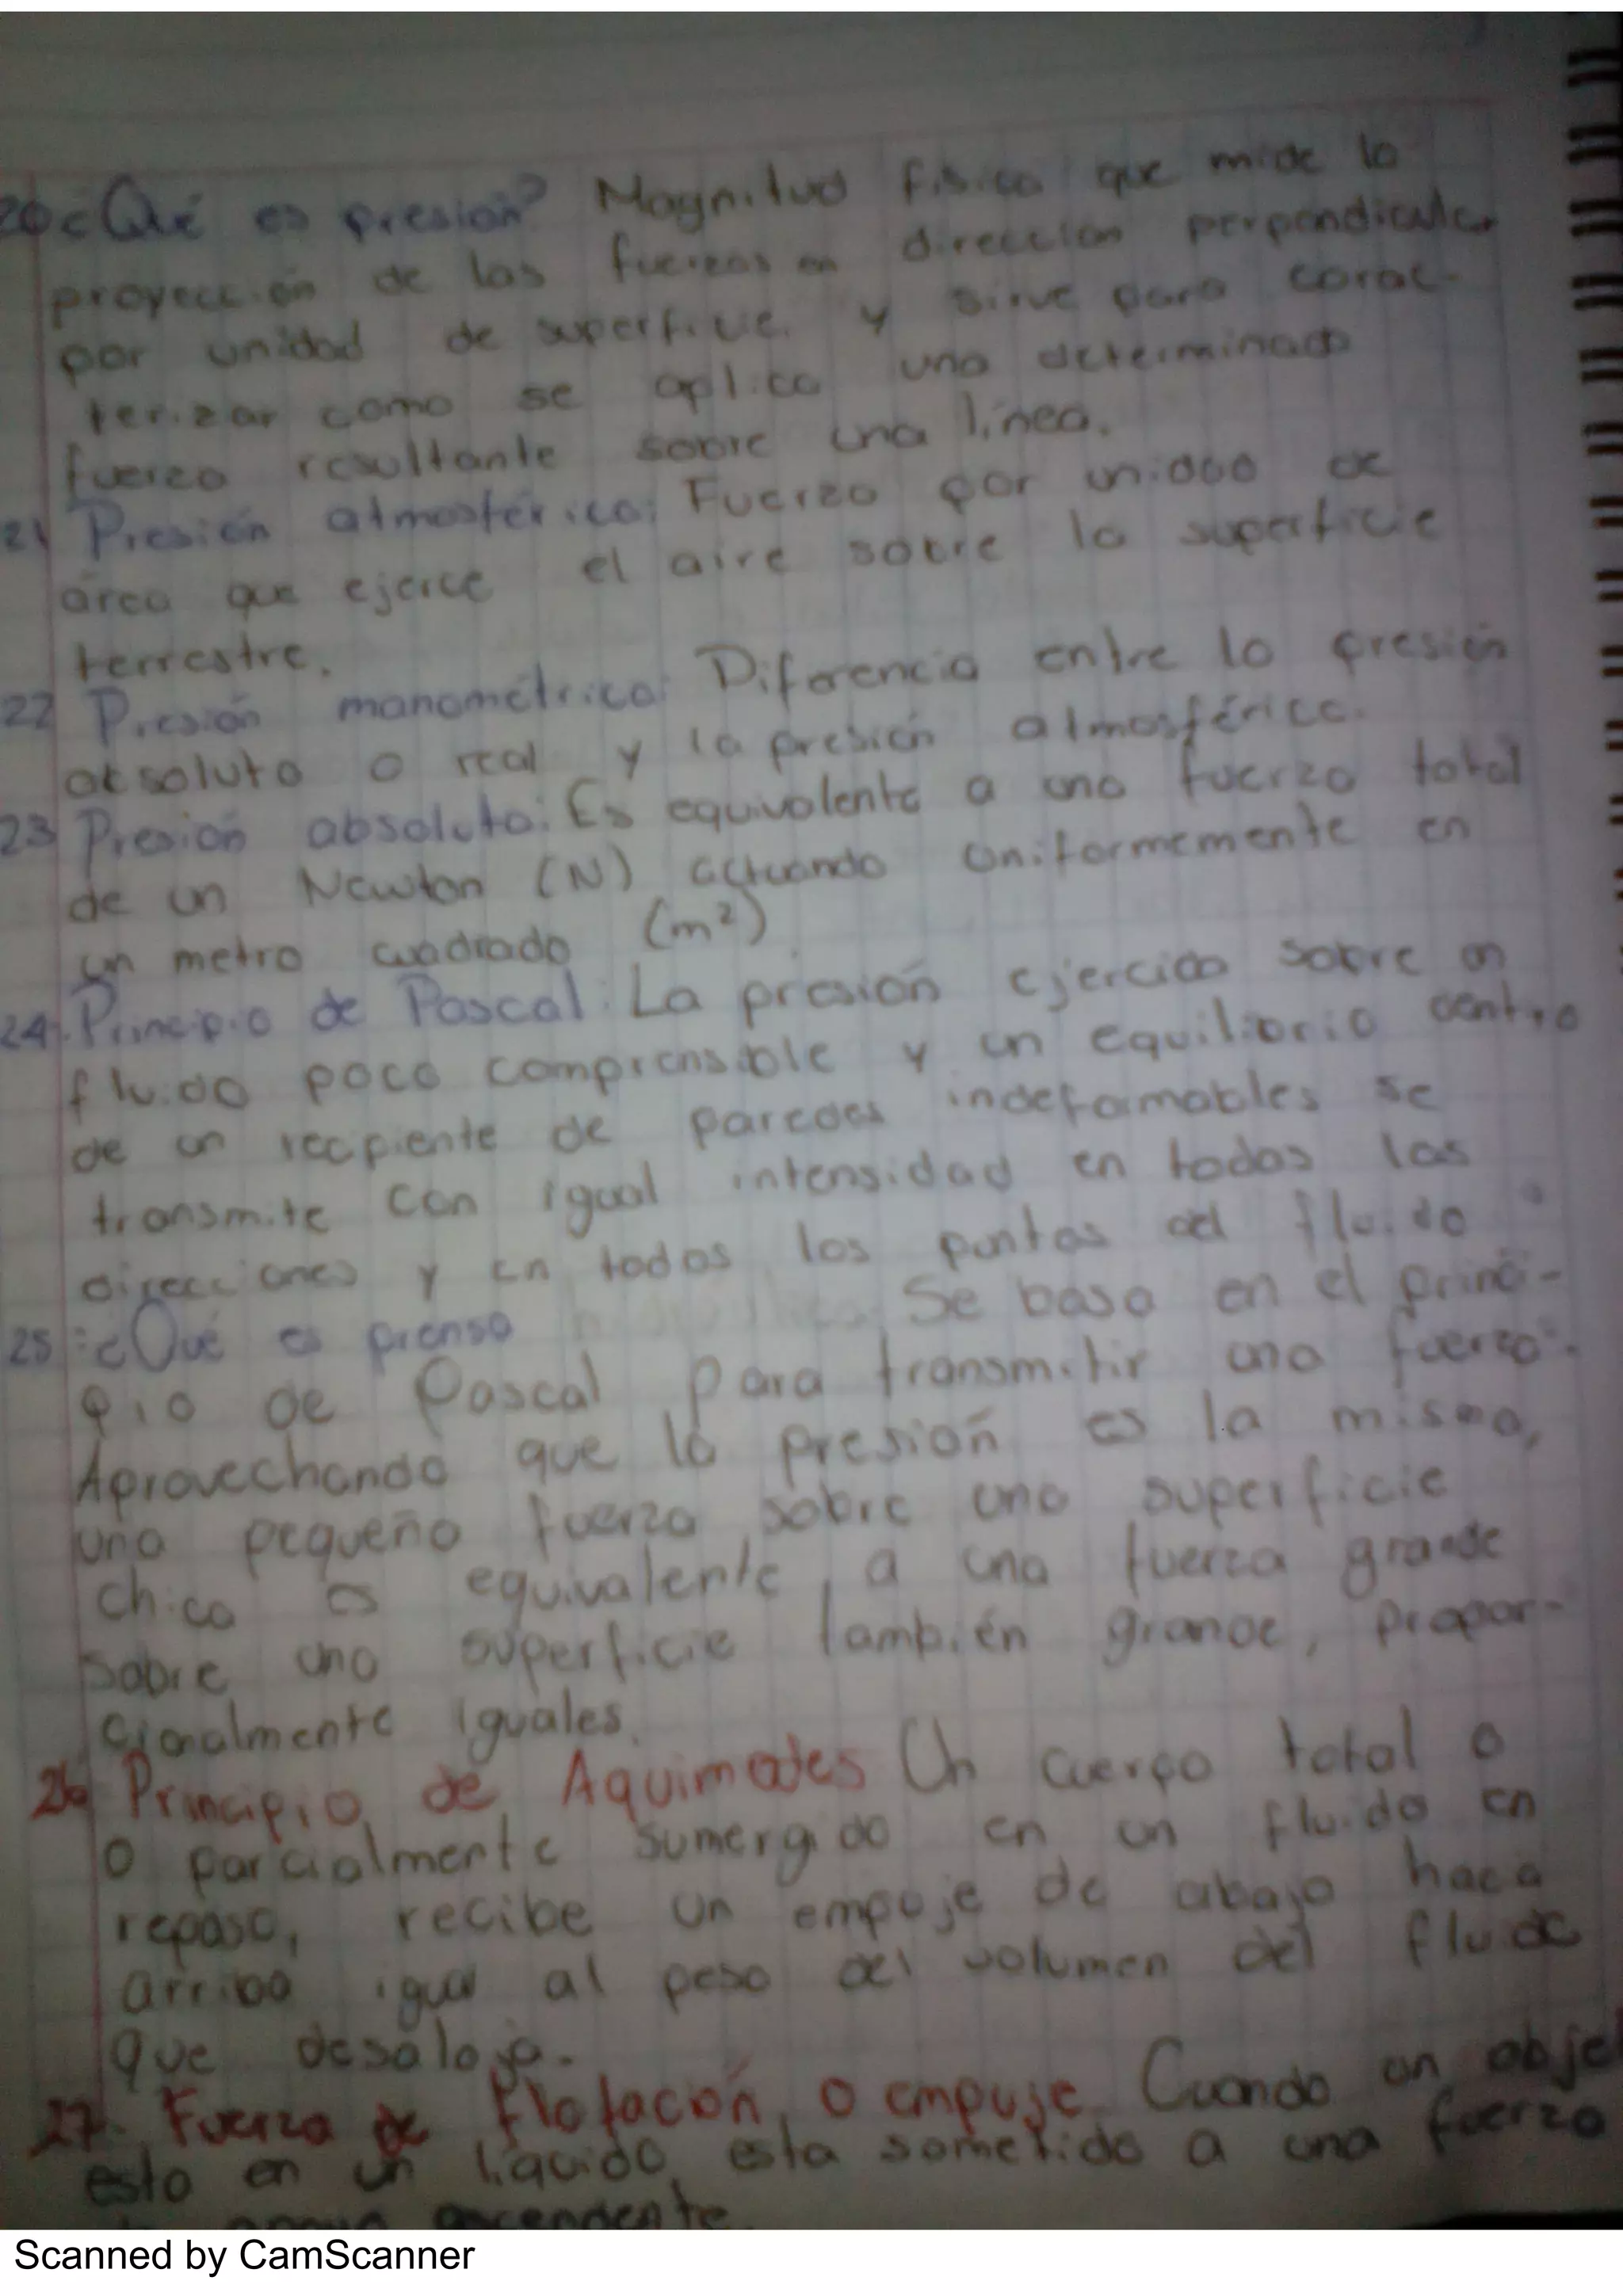 20 ¿Qué es presion? Magnitud fisica que mide la
proyección de las fuerzas en dirección perpendicular
por unidad de superficie, y sirve para carac-
terizar como se aplica una determinada
fuerza resultante sobre una línea.
21 Presión atmosférica: Fuerza por unidad de
área que ejerce el aire sobre la superficie
terrestre.
22 Presión manométrica: Diferencia entre la presión
absoluta o real y la presión atmosférica.
23 Presión absoluta: Es equivalente a una fuerza total
de un Newton (N) actuando uniformemente en
un metro cuadrado (m²)
24. Principio de Pascal: La presión ejercida sobre un
fluido poco comprensible y un equilibrio dentro
de un recipiente de paredes indeformables se
transmite con igual intensidad en todas las
direcciones y en todos los puntos del fluido
25 ¿Qué es prensa Se basa en el princi-
pio de Pascal para transmitir una fuerza.
Aprovechando que la presión es la misma,
una pequeña fuerza sobre una superficie
chica es equivalente a una fuerza grande
sobre una superficie también grande, propor-
cionalmente iguales.
26 Principio de Aquimedes Un cuerpo total o
o parcialmente sumergido en un fluido en
reposo, recibe un empuje de abajo hacia
arriba igual al peso del volumen del fluido
que desaloja.
27. Fuerza de flotación o empuje Cuando un obje
esta en un líquido, esta sometido a una fuerza
ascendente